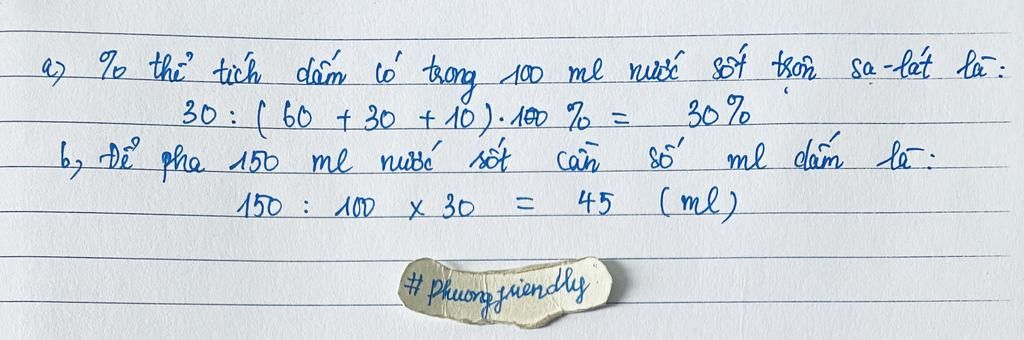 a) % thể tích dấm có trong 100 ml nước sốt trộn sa-lát là:
30 : (60 + 30 + 10) . 100 % = 30%
b, Để pha 150 ml nước sốt cần số ml dấm là:
150 : 100 x 30 = 45 (ml)
#phuongfriendly